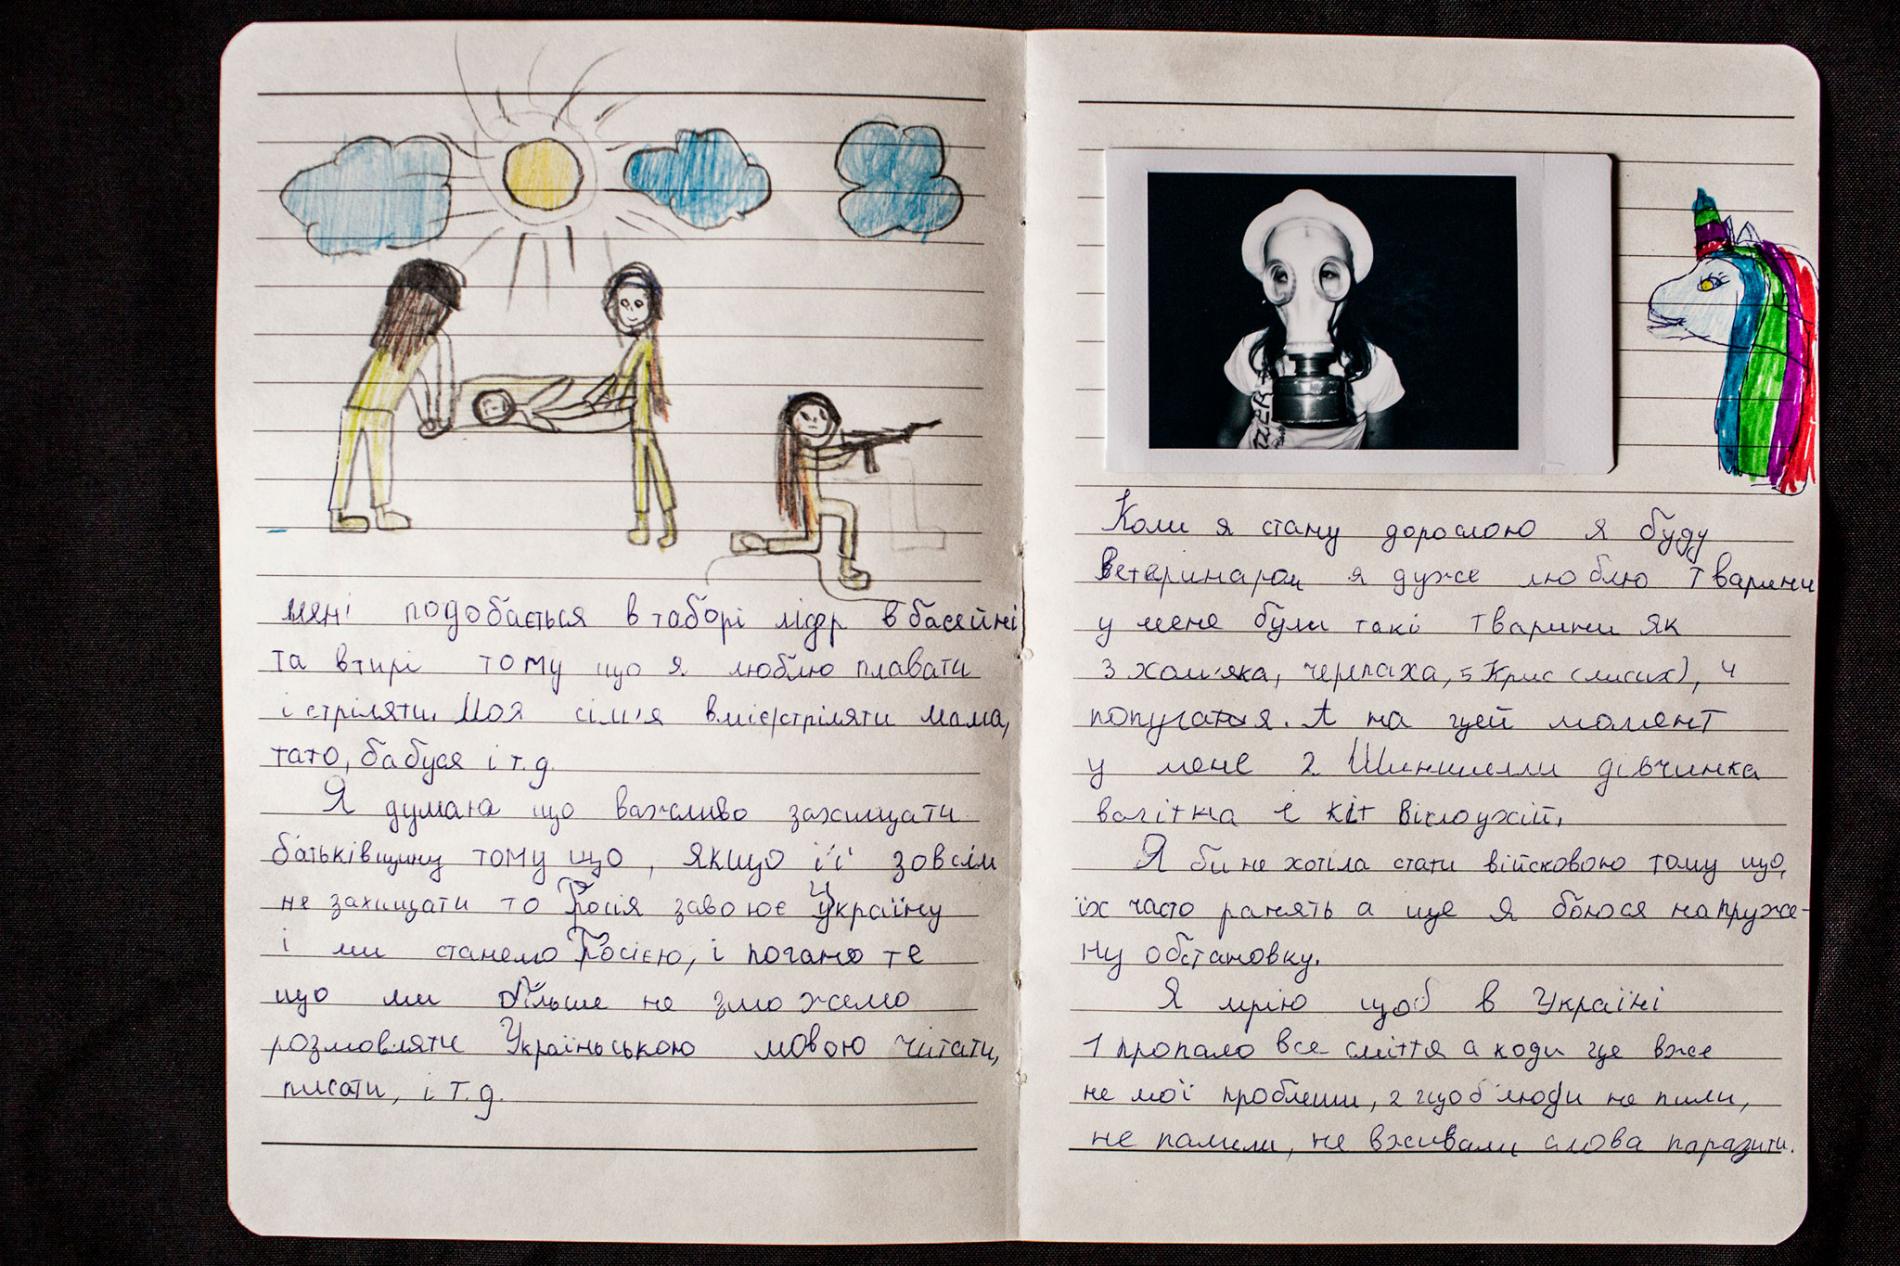 мені подобається в таборі лідр в басейні
та в тирі тому що я люблю плавати
і стріляти. Моя сім'я вміє стріляти мама,
тато, бабуся і т.д.
Я думаю що важливо захищати
батьківщину тому що, якщо її зовсім
не захищати то Росія завоює Україну
і ми станемо Росією, і погано те
що ми більше не зможемо
розмовляти Українською мовою читати,
писати, і т.д.
Коли я стану дорослою я буду
ветеринаром я дуже люблю тварини
у мене були такі тварини як
3 хом'яка, черепаха, 5 Крис (лисих), 4
попугая. А на цей момент
у мене 2 Шиншилли дівчинка
вагітна і кіт вислоухій.
Я би не хотіла стати військовою тому що,
їх часто ранять а ще я боюся напруже-
ну обстановку.
Я мрію щоб в Україні
1 пропало все сміття а коди це вже
не мої проблеми, 2 щоб люди не пили,
не палили, не вживали слова паразити.